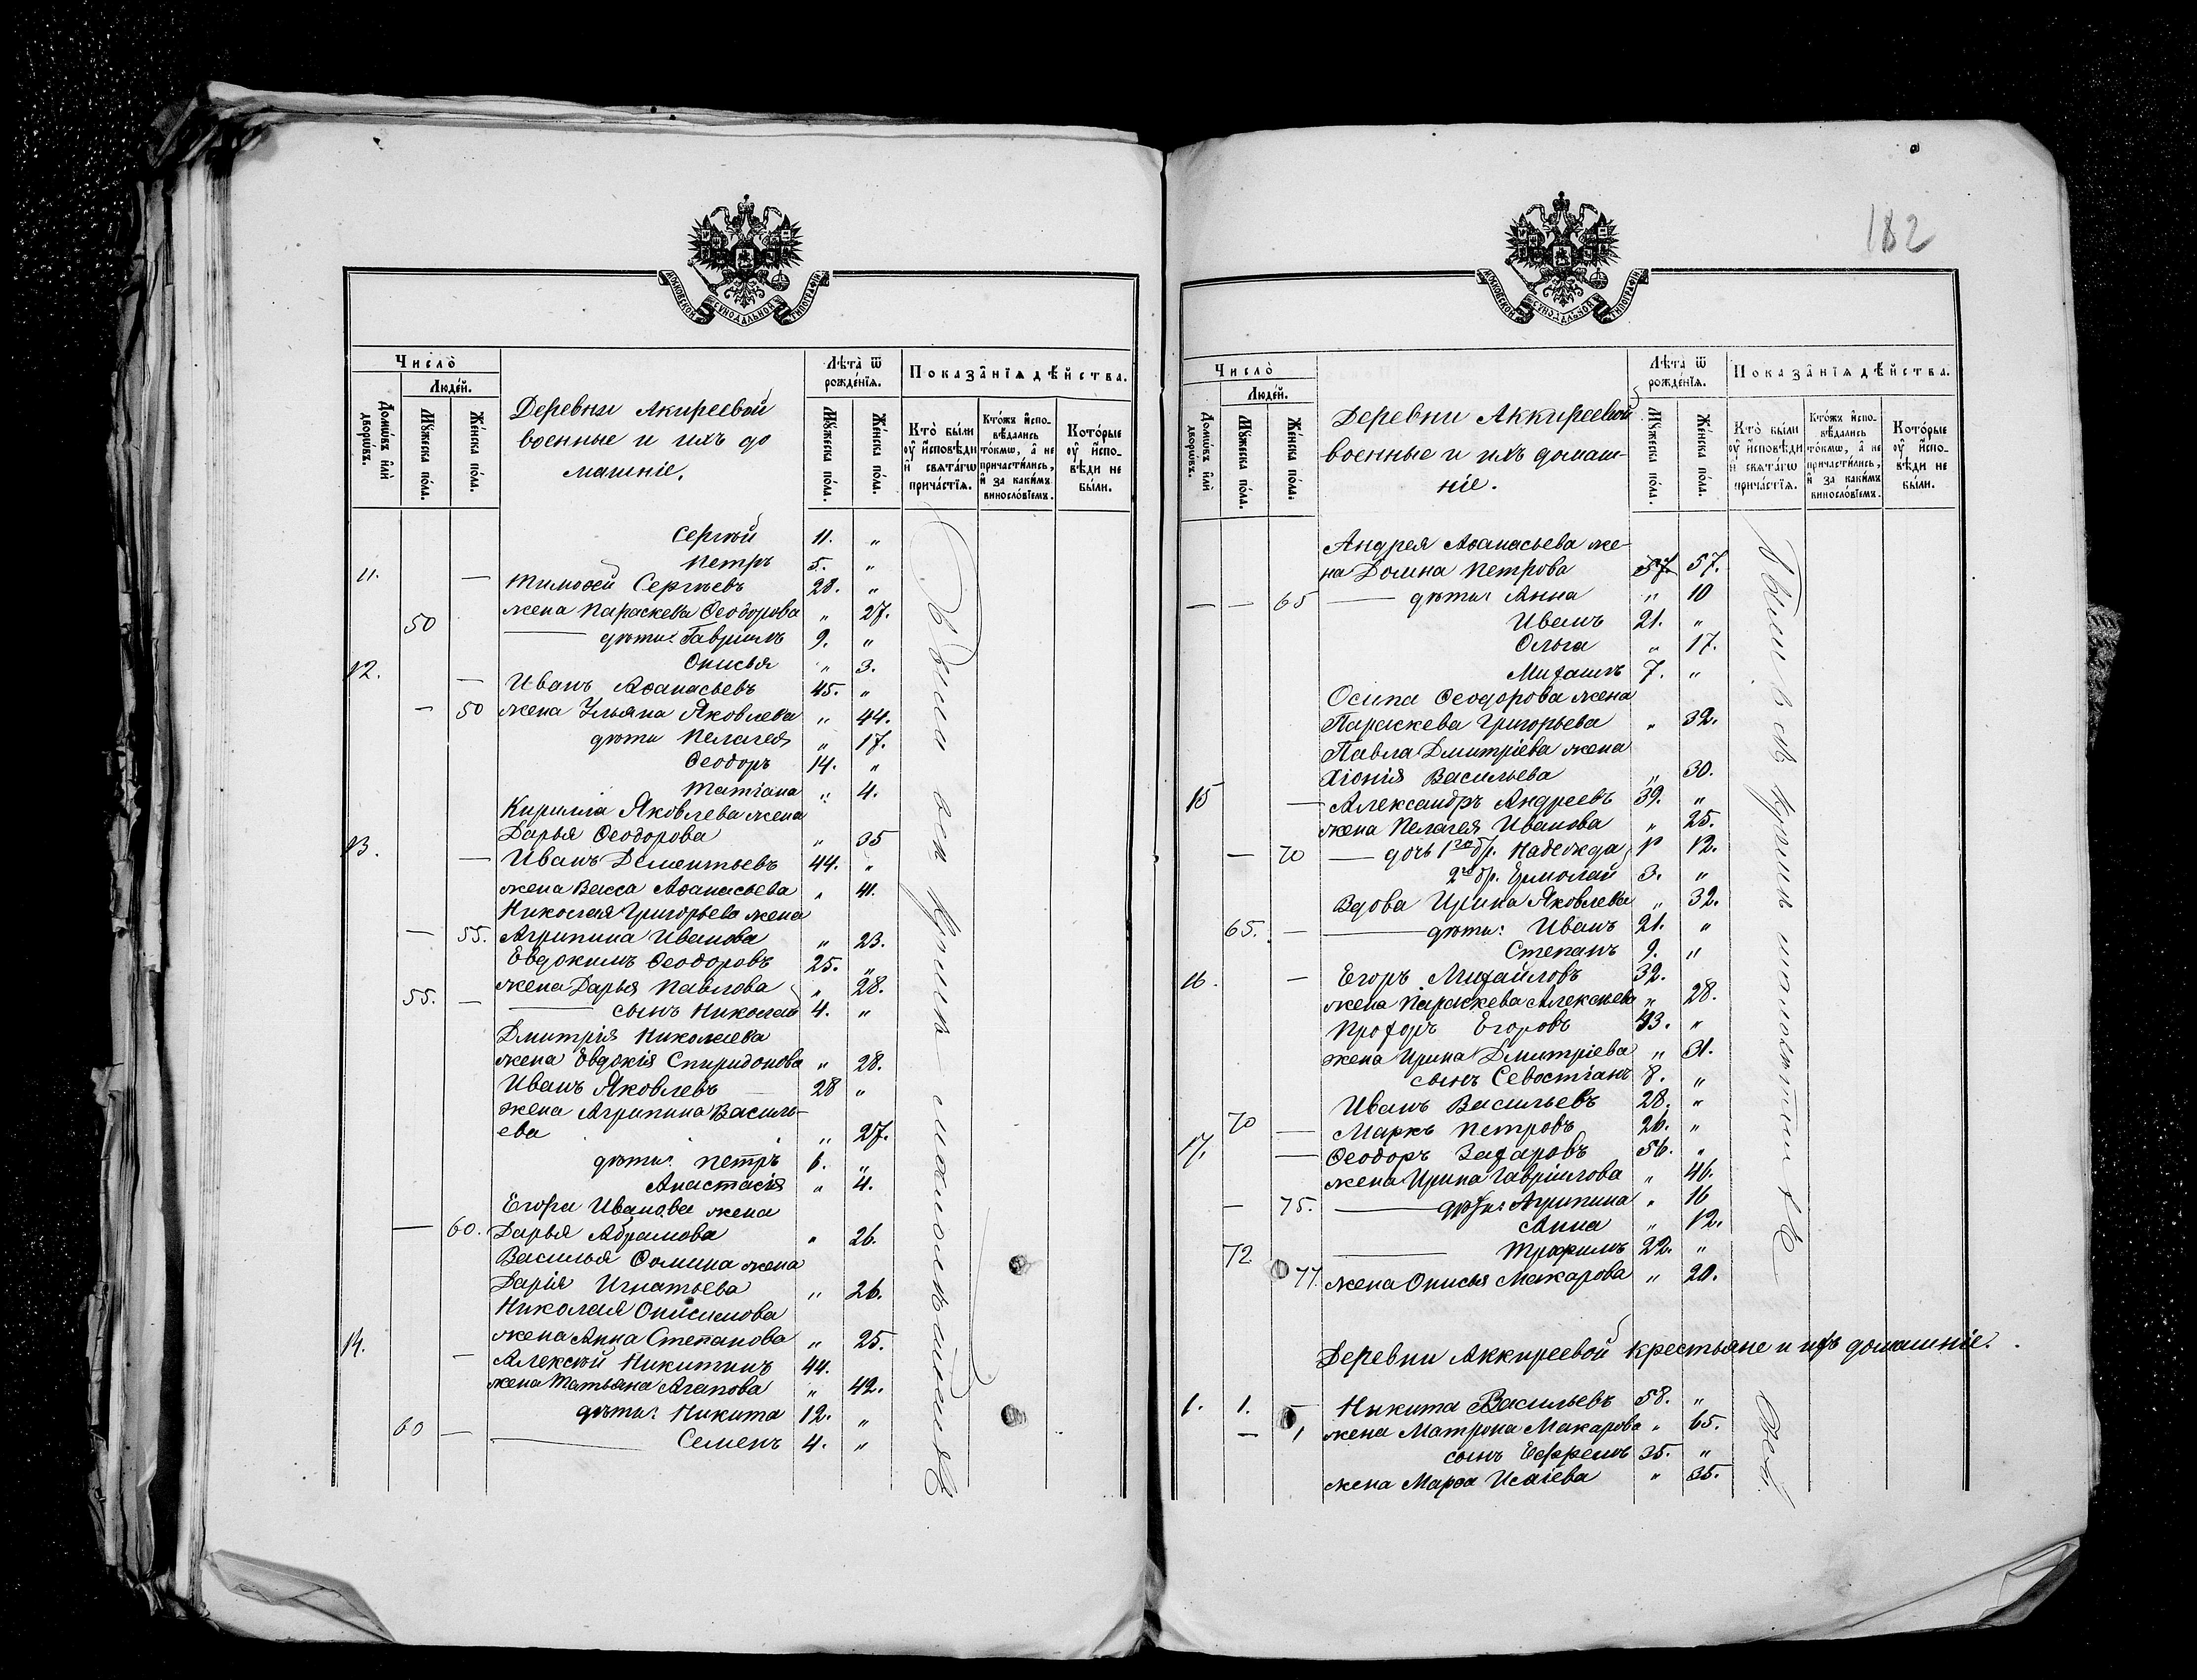 МОСКОВСКОЙ СѴНОДАЛЬНОЙ ТИПОГРАФІИ
Число̀
Людéй.
Домѡ́въ и҆лѝ дворѡ́въ.
Мꙋ́жеска по́ла.
Же́нска по́ла.
Деревни Акиреевой
военные и ихъ до
машніе.
Лѣ́та ѿ рожде́нїѧ.
Мꙋ́жеска по́ла.
Же́нска по́ла.
Показа̑нїѧ дѣ́йства.
Кто̀ бы́ли ᲂу҆ и҆́сповѣди и҆ свѧта́гѡ прича́стїѧ.
Кто́жъ и҆сповѣ́дались то́кмѡ, а҆ не причасти́лись, и҆ за каки́мъ винослѡ́вїемъ.
Кото́рые ᲂу҆ и҆́сповѣди не бы́ли.
Сергѣй 11. „
Петръ 5. „
11. — Тимоѳей Сергѣевъ 28. „
жена Параскева Ѳеодорова „ 27.
50 — дѣти: Гавріилъ 9. „
Онисья „ 3.
12. — Иванъ Аѳанасьевъ 45. „
— 50 жена Ульяна Яковлева „ 44.
дѣти Пелагея „ 17.
Ѳеодоръ 14. „
Татіана „ 4.
Кирилла Яковлева жена
Дарья Ѳеодорова „ 35
13. — Иванъ Дементьевъ 44. „
жена Васса Аѳанасьева „ 41.
Николая Григорьева жена
— 55. Агрипина Иванова „ 23.
Евдокимъ Ѳеодоровъ 25. „
жена Дарья Павлова „ 28.
55. — сынъ Николай 4. „
Дмитрія Николаева
жена Евдокія Спиридонова „ 28.
Иванъ Яковлевъ 28 „
жена Агрипина Василь-
ева „ 27.
дѣти: Петръ 6. „
Анастасія „ 4.
Егора Иванова жена
— 60. Дарья Абрамова „ 26.
Василья Ѳомина жена
Дарія Игнатьева „ 26.
Николая Онисимова
жена Анна Степанова „ 25.
14. — Алексѣй Никитинъ 44.
жена Татьяна Агапова „ 42.
дѣти: Никита 12. „
60 — Семенъ 4. „
182
МОСКОВСКОЙ СѴНОДАЛЬНОЙ ТИПОГРАФІИ
Число̀
Людéй.
Домѡ́въ и҆лѝ дворѡ́въ.
Мꙋ́жеска по́ла.
Же́нска по́ла.
Деревни Аккиреевой
военные и ихъ домаш-
ніе.
Лѣ́та ѿ рожде́нїѧ.
Мꙋ́жеска по́ла.
Же́нска по́ла.
Показа̑нїѧ дѣ́йства.
Кто̀ бы́ли ᲂу҆ и҆́сповѣди и҆ свѧта́гѡ прича́стїѧ.
Кто́жъ и҆сповѣ́дались то́кмѡ, а҆ не причасти́лись, и҆ за каки́мъ винослѡ́вїемъ.
Кото́рые ᲂу҆ и҆́сповѣди не бы́ли.
Андрея Аѳанасьева же-
на Домна Петрова 57. 57.
— — 65 — дѣти: Анна „ 10
Иванъ 21. „
Ольга „ 17.
Михаилъ 7. „
Осипа Ѳеодорова жена
Параскева Григорьева „ 32.
Павла Дмитріева жена
Хіонія Васильева „ 30.
15 — Александръ Андреевъ 39. „
жена Пелагея Иванова „ 25.
— 70 — дочь 1го бр. Надежда 12.
2го бр. Ермолай 3. „
Вдова Ирина Яковлева „ 32.
65. — — дѣти: Иванъ 21. „
Степанъ 9. „
16. — Егоръ Михайловъ 32.
жена Параскева Алексѣева „ 28.
Прохоръ Егоровъ 43. „
жена Ирина Дмитріева „ 31.
сынъ Севостіанъ 8. „
Иванъ Васильевъ 28. „
70 — Маркъ Петровъ 26. „
17. — Ѳеодоръ Захаровъ 56. „
жена Ирина Гавріилова „ 46.
— 75. — дѣти: Агрипина „ 16
Анна „ 12.
72 — Трофимъ 22. „
77. жена Онисья Макарова „ 20.
Деревни Аккиреевой крестьяне и ихъ домашніе.
1. 1. Никита Васильевъ 58. „
— 1 жена Матрона Макарова „ 65.
сынъ Ефремъ 35. „
жена Марѳа Исаіева „ 35.